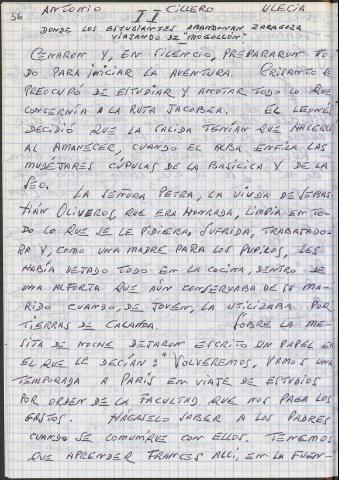 36 ANTONIO CILLERO ULECIA
II
DONDE LOS ESTUDIANTES ABANDONAN ZARAGOZA
VIAJANDO DE "MOGOLLON"
CENARON Y, EN SILENCIO, PREPARARON TO-
DO PARA INICIAR LA AVENTURA. CRISANTO SE
PREOCUPÓ DE ESTUDIAR Y ANOTAR TODO LO QUE
CONCERNÍA A LA RUTA JACOBEA. EL LEONÉS
DECIDIÓ QUE LA SALIDA TENÍAN QUE HACERLA
AL AMANECER, CUANDO EL ALBA ENFILA LAS
MUDÉJARES CÚPULAS DE LA BASÍLICA Y DE LA
SEO.
LA SEÑORA PETRA, LA VIUDA DE SEBAS-
TIÁN OLIVEROS, QUE ERA HONRADA, LIMPIA EN TO-
DO LO QUE SE LE PIDIERA, SUFRIDA, TRABAJADO-
RA Y, COMO UNA MADRE PARA LOS PUPILOS, LES
HABÍA DEJADO TODO EN LA COCINA, DENTRO DE
UNA ALFORJA QUE AÚN CONSERVABA DE SU MA-
RIDO CUANDO, DE JOVEN, LA UTILIZABA POR
TIERRAS DE CALANDA. SOBRE LA ME-
SITA DE NOCHE DEJARON ESCRITO UN PAPEL EN
EL QUE LE DECÍAN: "VOLVEREMOS, VAMOS UNA
TEMPORADA A PARÍS EN VIAJE DE ESTUDIOS
POR ORDEN DE LA FACULTAD QUE NOS PAGA LOS
GASTOS. HAGASELO SABER A LOS PADRES
CUANDO SE COMUNIQUE CON ELLOS. TENEMOS
QUE APRENDER FRANCES ALLÍ, EN LA FUEN-